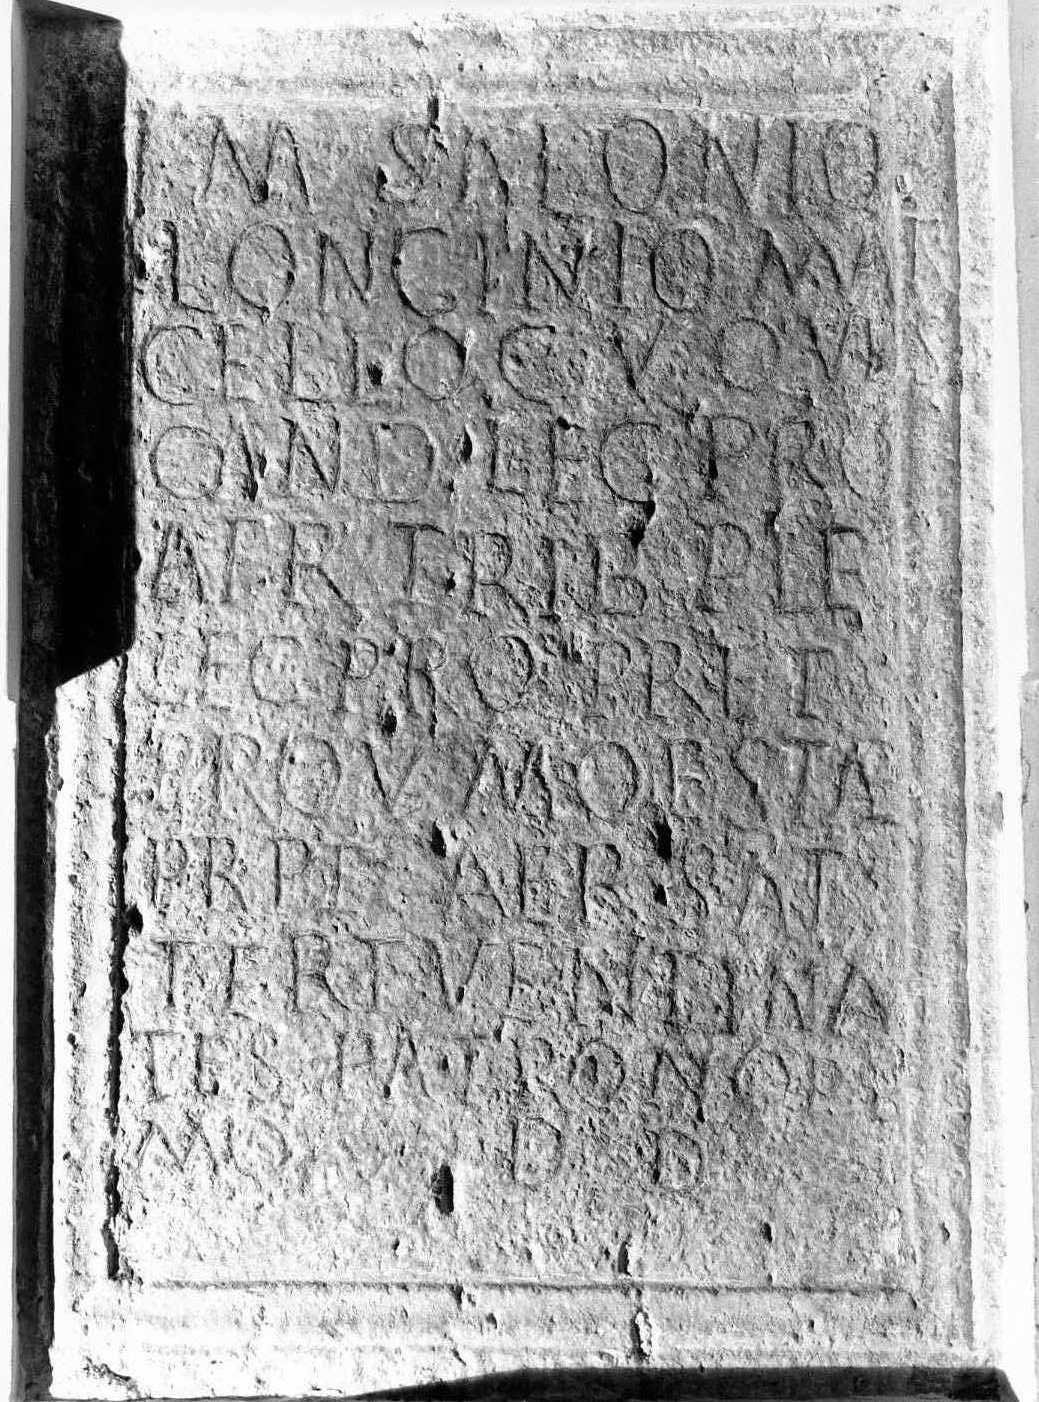 M SALONIO
LONGINIO MAR
CELLO C V Q
CAND LEG PRO
AFR TRIB PLE
LEG PRO PRAET
PROV MOESIA
PRAEF AERAR SAT
TEREVENTINA
TES PATRONO OP
MO D D